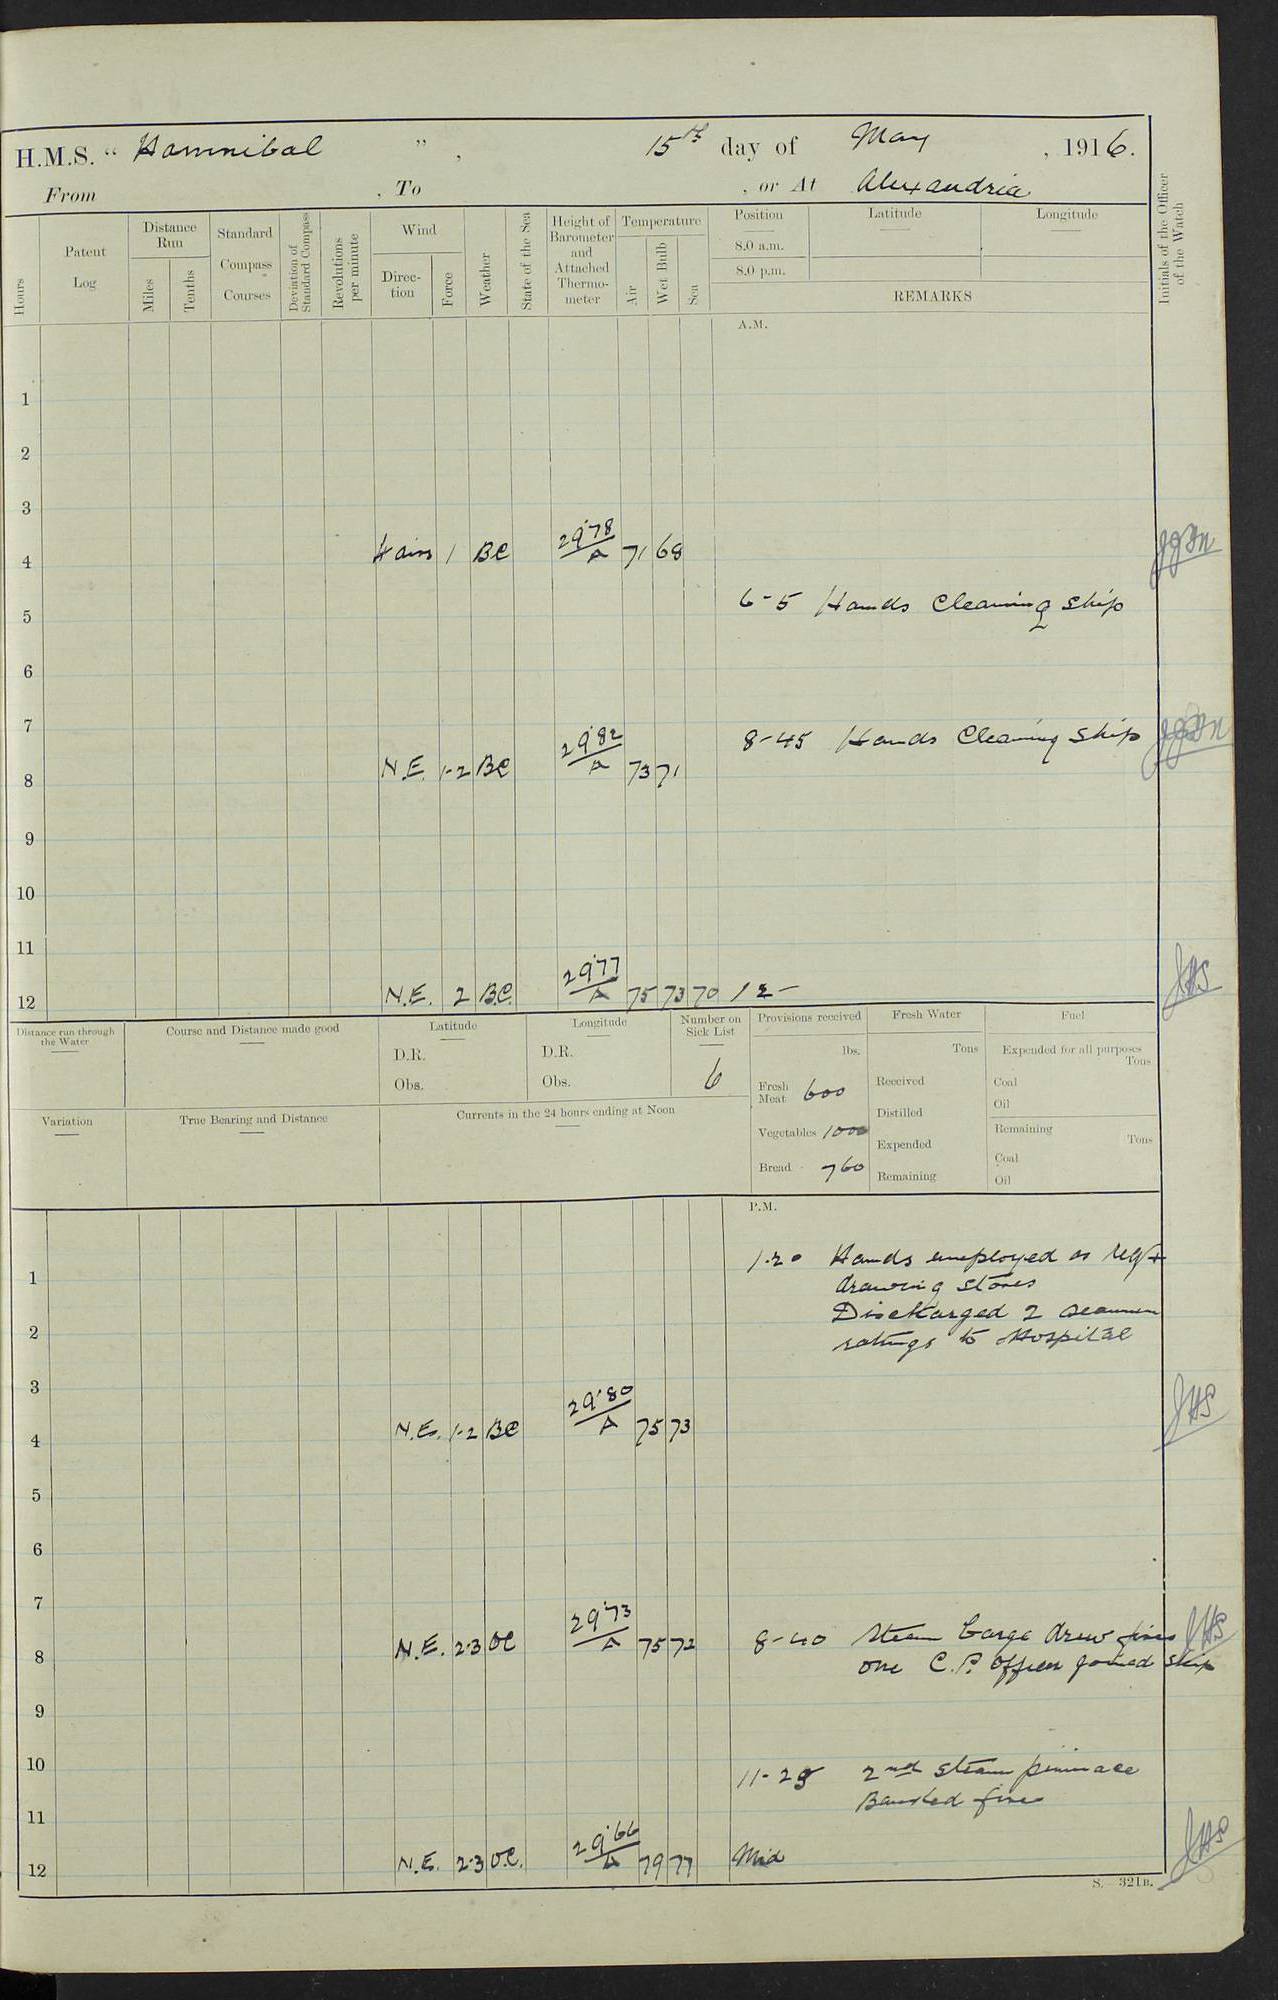 H.M.S. “ Hannibal ” , 15th day of May , 1916.
From , To , or At Alexandria
Hours
Patent Log
Distance Run
Miles
Tenths
Standard Compass Courses
Deviation of Standard Compass
Revolutions per minute
Wind
Direction
Force
Weather
State of the Sea
Height of Barometer and Attached Thermometer
Temperature
Air
Wet Bulb
Sea
Position
8.0 a.m.
8.0 p.m.
Latitude
Longitude
REMARKS
Initials of the Officer of the Watch
A.M.
1
2
3
4 airs 1 BC 29.78 A 71 68
6-5 Hands Cleaning Ship
5
6
7
8-45 Hands Cleaning Ship
8 N.E. 1-2 BC 29.82 A 73 71
9
10
11
12 N.E. 2 B.C. 29.77 A 75 73 70 12- JHS
Distance run through the Water
Course and Distance made good
Latitude
D.R.
Obs.
Longitude
D.R.
Obs.
Number on Sick List
6
Provisions received
lbs.
Fresh Meat 600
Vegetables 1000
Bread 760
Fresh Water
Tons
Received
Distilled
Expended
Remaining
Fuel
Expended for all purposes
Tons
Coal
Oil
Remaining
Tons
Coal
Oil
Variation
True Bearing and Distance
Currents in the 24 hours ending at Noon
P.M.
1-20 Hands employed as req+
1
drawing stores
Discharged 2 seamen
2
ratings to Hospital
3
4 N.E. 1-2 BC 29.80 A 75 73 JHS
5
6
7
8 N.E. 2-3 OC 29.73 A 75 72 8-40 Steam barge drew fires JHS
one C.P. Officer joined ship
9
10 11-25 2nd steam pinnace
Banked fires
11
12 N.E. 2-3 O.C. 29.66 A 79 77 Mid JHS
S. 321B.